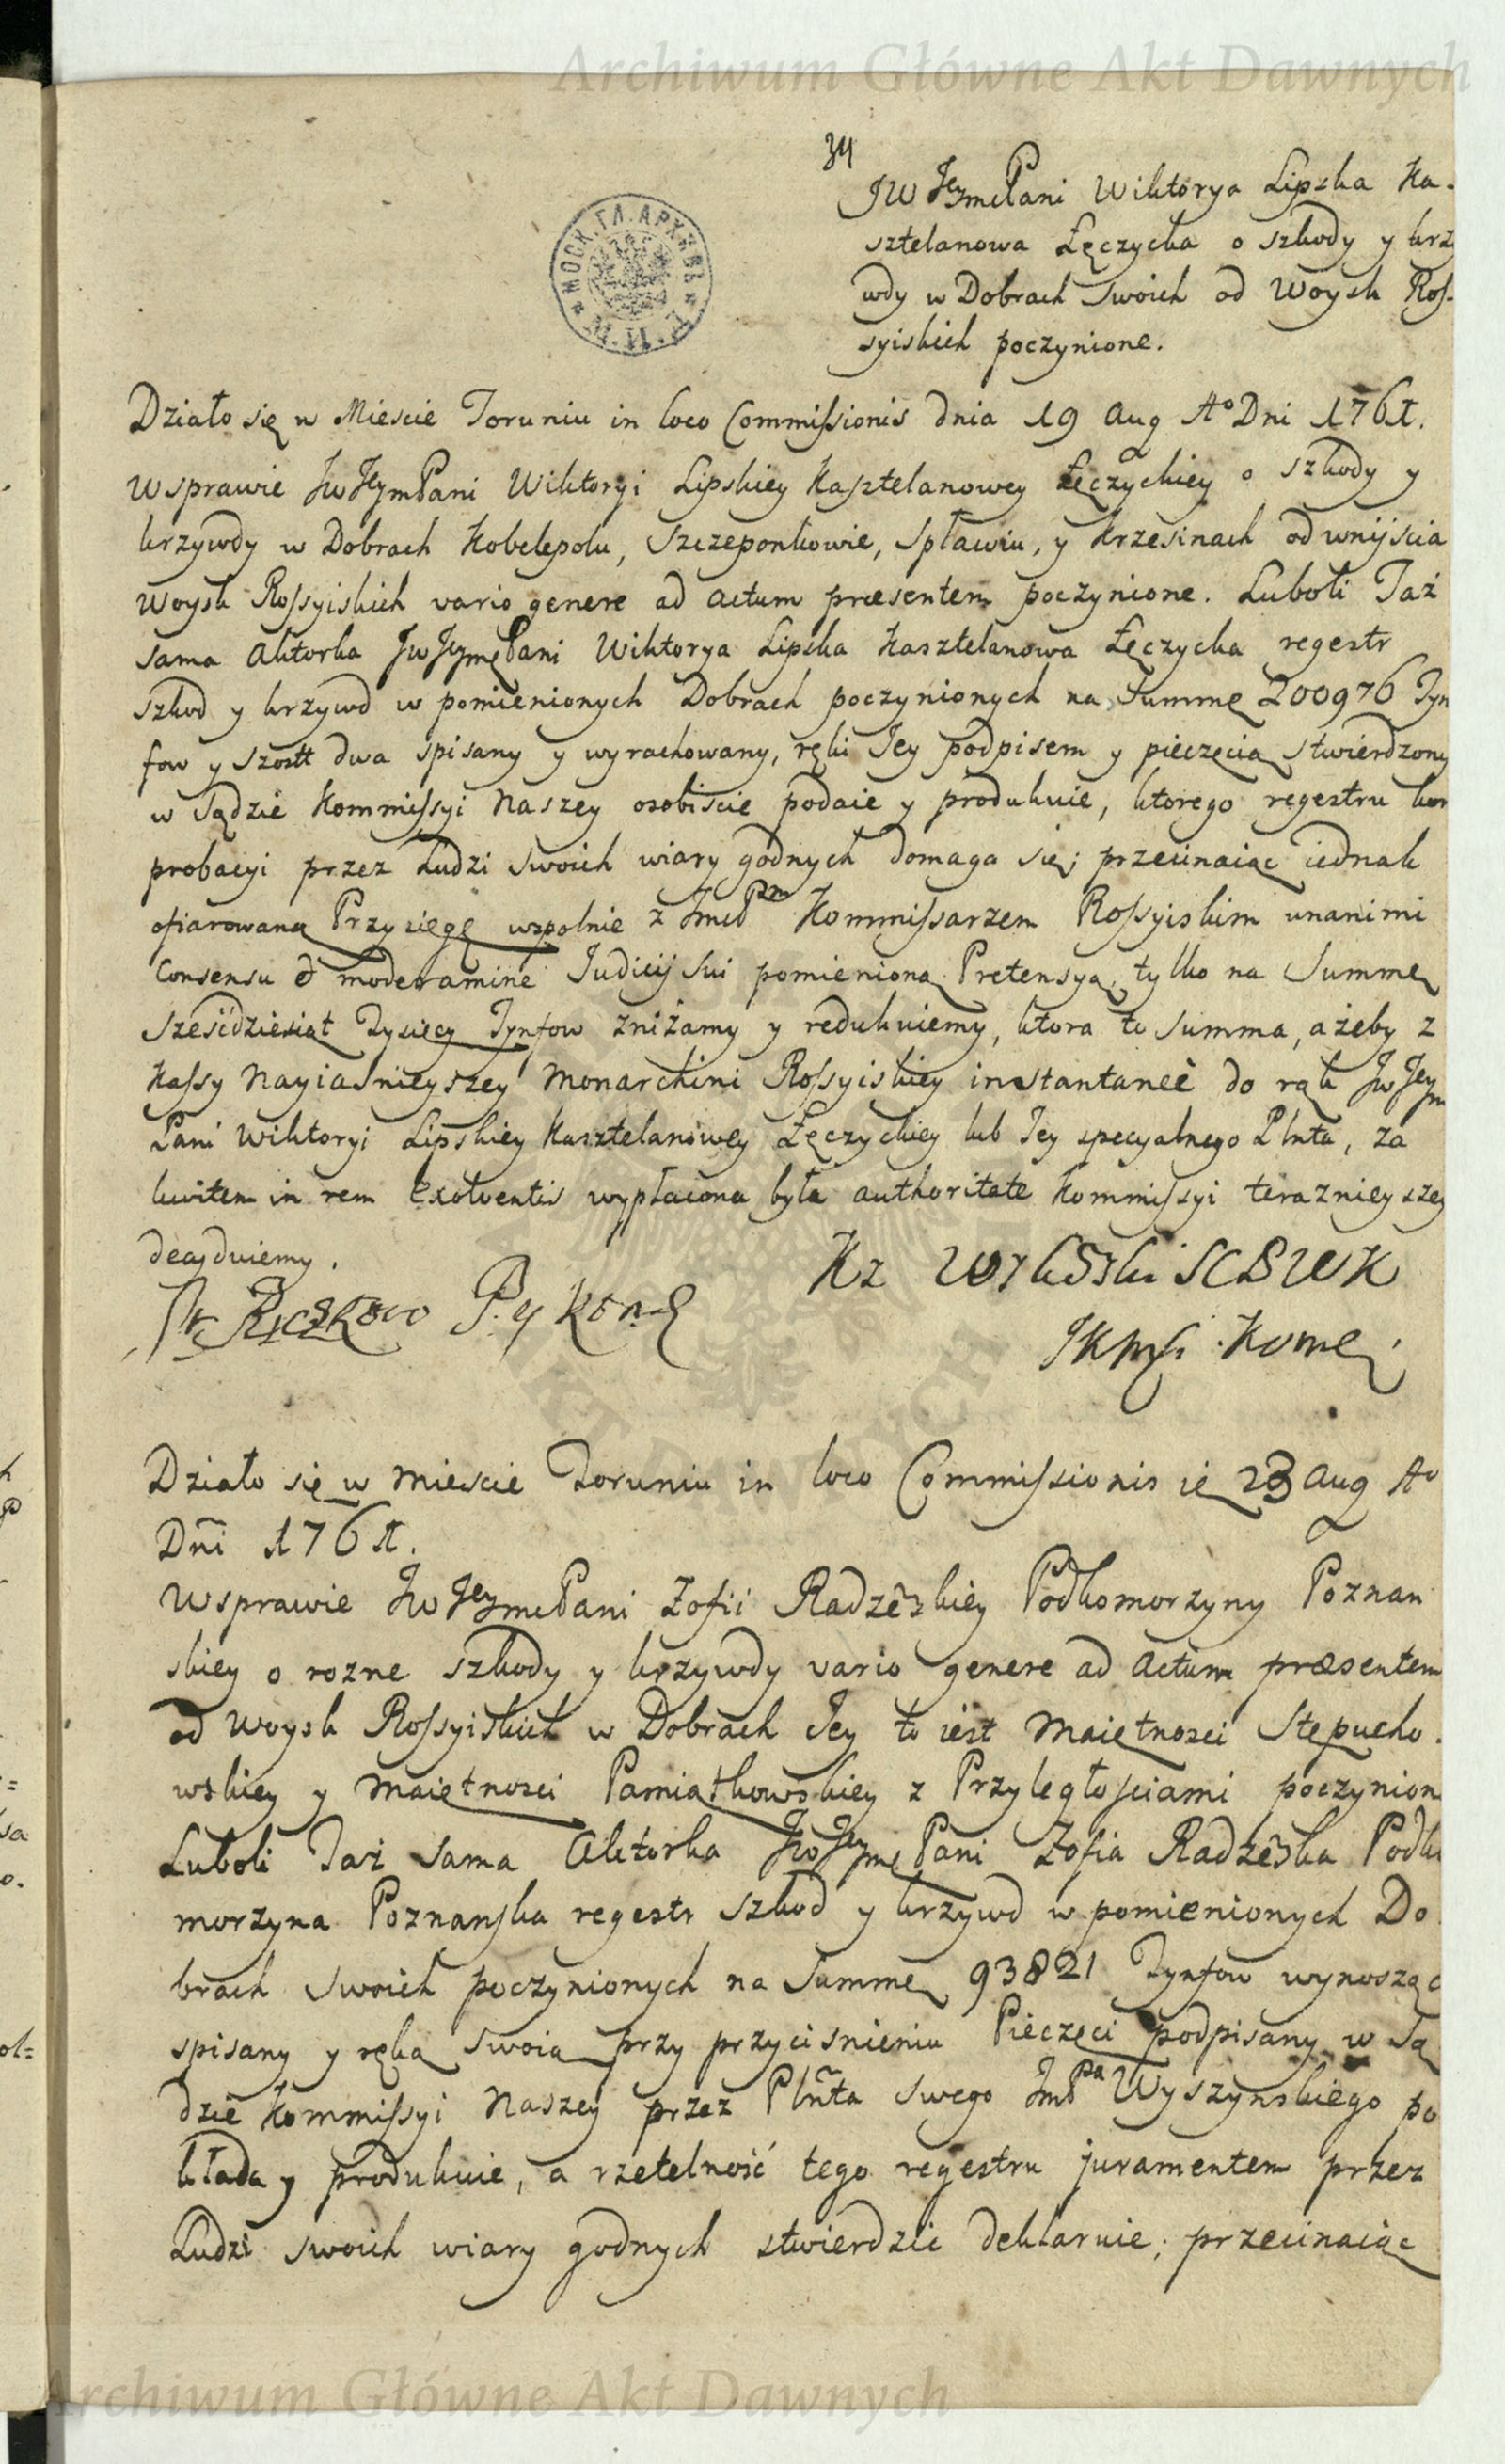 Archiwum Główne Akt Dawnych
34
JW JeymcPani Wiktorya Lipska Ka-
sztelanowa Łęczycka o szkody y krz
wdy w Dobrach swoich od Woysk Ros-
syiskich poczynione.
МОСК. ГЛ. АРХИВЪ
Działo się w Miescie Toruniu in loco Commissionis dnia 19 Aug Aº Dni 1761.
W sprawie JW JeymPani Wiktoryi Lipskiey Kasztelanowey Łęczyckiey o szkody y
krzywdy w Dobrach Kobelepolu, Szczeponkowie, Spławiu, y Krzesinach od wnijscia
Woysk Rossyiskich vario genere ad actum præsentem poczynione. Luboli Taż
sama Aktorka JW JeymcPani Wiktorya Lipska Kasztelanowa Łęczycka regestr
szkod y krzywd w pomienionych Dobrach poczynionych na Summę 200976 Tyn
fow y szostt dwa spisany y wyrachowany, ręki Jey podpisem y pieczęcią stwierdzony
w Sądzie Kommissyi Naszey osobiscie podaie y produkuie, ktorego regestru kom
probacyi przez Ludzi swoich wiary godnych domaga się; przecinaiąc iednak
ofiarowaną Przysięgę wspolnie z JmcPm Kommissarzem Rossyiskim unanimi
Consensu & moderamine Judicij Sui pomienioną Pretensyą, tylko na Summę
Sześćdziesiąt Tysięcy Tynfow zniżamy y redukuiemy, ktora to summa, ażeby z
Kassy Nayiasnieyszey Monarchini Rossyiskiey instantaneè do rąk JW Jeym
Pani Wiktoryi Lipskiey Kasztelanowey Łęczyckiey lub Jey specyalnego Plnta, za
kwitem in rem Exolventis wypłacona była authoritate Kommissyi teraznieyszey
decyduiemy.
Działo się w Miescie Toruniu in loco Commissionis ie 23 Aug Aº
Dni 1761.
W sprawie JW JeymcPani Zofii Radzeskiey Podkomorzyny Poznan
skiey o rozne szkody y krzywdy vario genere ad actum præsentem
od Woysk Rossyiskich w Dobrach Jey to iest Maiętnosci Stępucho
wskiey y Maiętnosci Pamiątkowskiey z Przyległosciami poczynion
Luboli Taż sama Aktorka JW JeymcPani Zofia Radzeska Podko
morzyna Poznanska regestr szkod y krzywd w pomienionych Do
brach swoich poczynionych na Summę 93821 Tynfow wynosząc
spisany y ręką swoią przy przycisnieniu Pieczęci podpisany w Są
dzie Kommissyi Naszey przez Plnta swego JmPa Wyszynskiego po
kłada y produkuie, a rzetelność tego regestru juramentem przez
Ludzi swoich wiary godnych stwierdzic deklaruie; przecinaiąc
Archiwum Główne Akt Dawnych